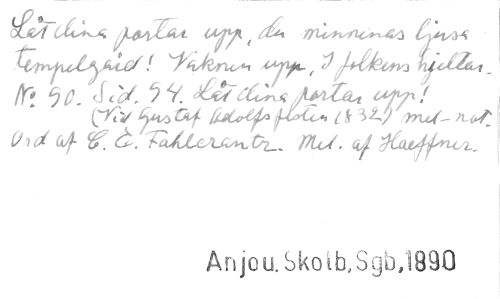 Låt dina portar upp, du minninas ljusa
tempelgård! Vaknen upp, I folkens hjeltar.
No. 90. Sid. 94. Låt dina portar upp!
(Vid Gustaf Adolfsfesten 1832) mel-not.
Ord af C. E. Fahlcrantz. Mel. af Haeffner.
Anjou. Skolb, Sgb, 1890